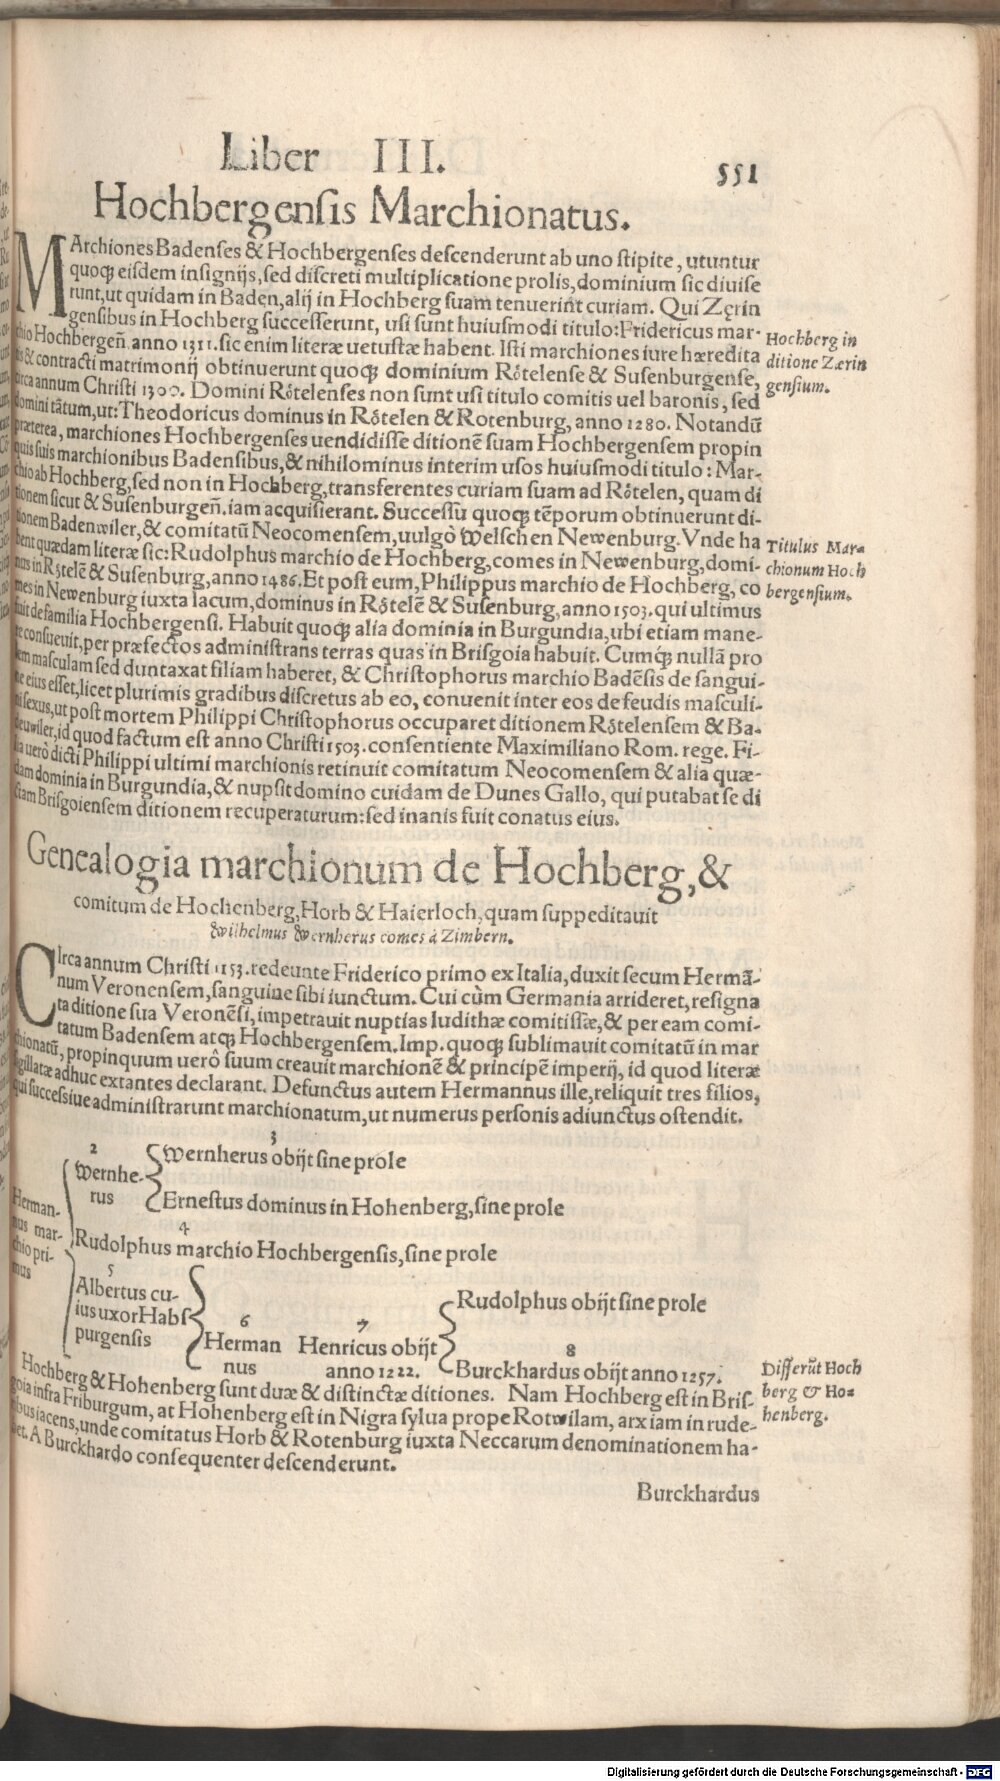 Liber III. 551
Hochbergensis Marchionatus.
MArchiones Badenses & Hochbergenses descenderunt ab uno stipite, utuntur
quoq; eisdem insignijs, sed discreti multiplicatione prolis, dominium sic diuise
runt, ut quidam in Baden, alij in Hochberg suam tenuerint curiam. Qui Zęrin
gensibus in Hochberg successerunt, usi sunt huiusmodi titulo: Fridericus mar-
chio Hochbergen̄ anno 1311. sic enim literæ uetustæ habent. Isti marchiones iure hæredita
tis & contracti matrimonij obtinuerunt quoq; dominium Rótelense & Susenburgense,
circa annum Christi 1300. Domini Rótelenses non sunt usi titulo comitis uel baronis, sed
domini tãtum, ut: Theodoricus dominus in Rótelen & Rotenburg, anno 1280. Notandũ
præterea, marchiones Hochbergenses uendidisse ditionẽ suam Hochbergensem propin
quis suis marchionibus Badensibus, & nihilominus interim usos huiusmodi titulo: Mar-
chio ab Hochberg, sed non in Hochberg, transferentes curiam suam ad Rótelen, quam di
tionem sicut & Susenburgen̄, iam acquisierant. Successu quoq; tẽporum obtinuerunt di-
tionem Badenwiler, & comitatũ Neocomensem, uulgò Welschen Newenburg. Vnde ha
bent quædam literæ sic: Rudolphus marchio de Hochberg, comes in Newenburg, domi-
nus in Rótelẽ & Susenburg, anno 1486. Et post eum, Philippus marchio de Hochberg, co
mes in Newenburg iuxta lacum, dominus in Rótelẽ & Susenburg, anno 1503. qui ultimus
fuit de familia Hochbergensi. Habuit quoq; alia dominia in Burgundia, ubi etiam mane-
re consueuit, per præfectos administrans terras quas in Brisgoia habuit. Cumq; nullã pro
lem masculam sed duntaxat filiam haberet, & Christophorus marchio Badẽsis de sangui-
ne eius esset, licet plurimis gradibus discretus ab eo, conuenit inter eos de feudis masculi-
ni sexus, ut post mortem Philippi Christophorus occuparet ditionem Rótelensem & Ba-
deuwiler, id quod factum est anno Christi 1503. consentiente Maximiliano Rom. rege. Fi-
lia uerò dicti Philippi ultimi marchionis retinuit comitatum Neocomensem & alia quæ-
dam dominia in Burgundia, & nupsit domino cuidam de Dunes Gallo, qui putabat se di
ctam Brisgoiensem ditionem recuperaturum: sed inanis fuit conatus eius.
Hochberg in
ditione Zærin
gensium.
Titulus Mar-
chionum Hoch
bergensium.
Genealogia marchionum de Hochberg, &
comitum de Hochenberg, Horb & Haierloch, quam suppeditauit
Wilhelmus Wernherus comes à Zimbern.
CIrca annum Christi 1153. redeunte Friderico primo ex Italia, duxit secum Hermã-
num Veronensem, sanguine sibi iunctum. Cui cùm Germania arrideret, resigna
ta ditione sua Veronẽsi, impetrauit nuptias Iudithæ comitissæ, & per eam comi-
tatum Badensem atq; Hochbergensem. Imp. quoq; sublimauit comitatũ in mar
chionatũ, propinquum uerò suum creauit marchionẽ & principẽ imperij, id quod literæ
sigillatæ adhuc extantes declarant. Defunctus autem Hermannus ille, reliquit tres filios,
qui successiue administrarunt marchionatum, ut numerus personis adiunctus ostendit.
Herman-
nus mar-
chio pri-
mus
2
Wernhe-
rus
3
Wernherus obijt sine prole
Ernestus dominus in Hohenberg, sine prole
4
Rudolphus marchio Hochbergensis, sine prole
5
Albertus cu-
ius uxor Habs
purgensis
6
Herman
nus
7
Henricus obijt
anno 1222.
Rudolphus obijt sine prole
8
Burckhardus obijt anno 1257.
Hochberg & Hohenberg sunt duæ & distinctæ ditiones. Nam Hochberg est in Bris-
goia infra Friburgum, at Hohenberg est in Nigra sylua prope Rotwilam, arx iam in rude-
ribus iacens, unde comitatus Horb & Rotenburg iuxta Neccarum denominationem ha-
bet. A Burckhardo consequenter descenderunt.
Differũt Hoch
berg & Ho-
henberg.
Burckhardus
Digitalisierung gefördert durch die Deutsche Forschungsgemeinschaft - DFG